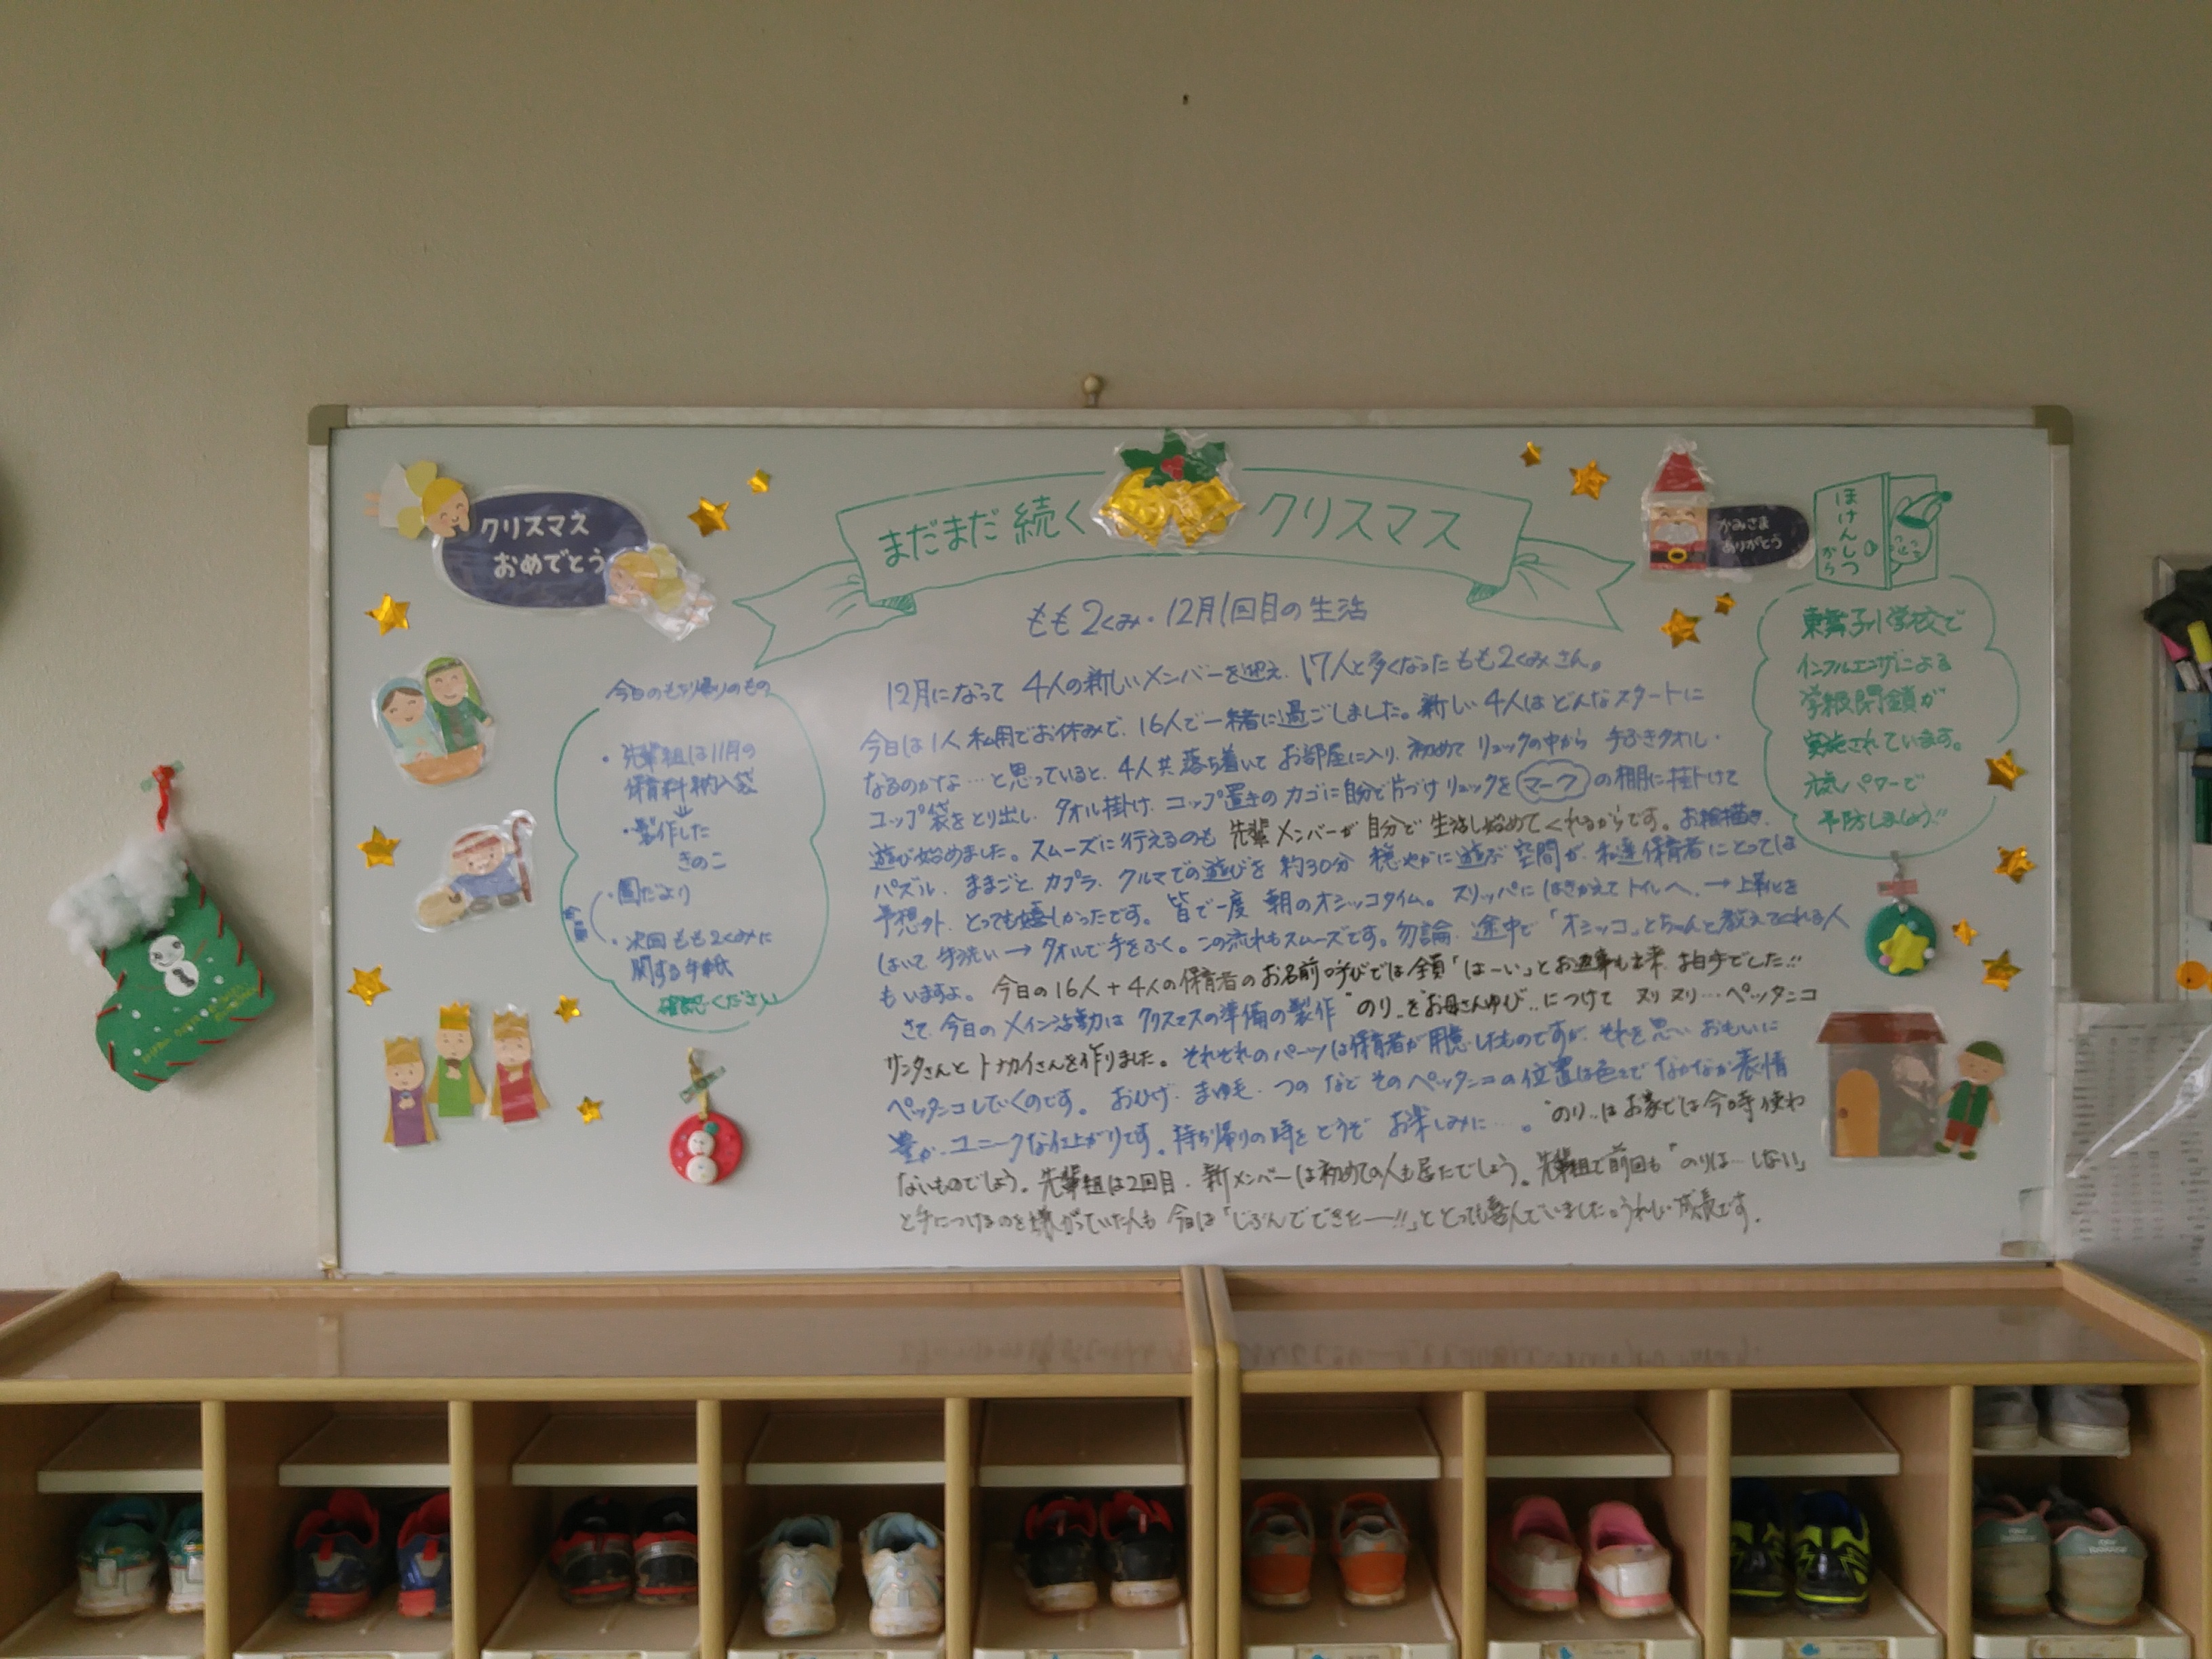 クリスマス
おめでとう
まだまだ続く クリスマス
かみさま
ありがとう
ほけんしつ
から
もも2くみ・12月1回目の生活
今日のもち帰りのもの
・先輩組は11月の
保育料納入袋
↓
・製作した
きのこ
・園だより
・次回もも2くみに
関する手紙
確認ください
12月になって 4人の新しいメンバーを迎え、17人と多くなったもも2くみさん。
今日は1人私用でお休みで、16人で一緒に過ごしました。新しい4人はどんなスタートに
なるのかな…と思っていると、4人共落ち着いてお部屋に入り、初めてリュックの中から 手ふきタオル・
コップ袋をとり出し、タオル掛け、コップ置きのカゴに自分で片づけリュックをマークの棚に掛けて
遊び始めました。スムーズに行えるのも 先輩メンバーが自分で生活し始めてくれるからです。お絵描き、
パズル、ままごと、カプラ、クルマでの遊びを 約30分 穏やかに遊ぶ空間が、私達保育者にとっては
予想外、とっても嬉しかったです。皆で一度 朝のオシッコタイム。スリッパにはきかえてトイレへ、→上靴を
はいて 手洗い→タオルで手をふく。この流れもスムーズです。勿論、途中で「オシッコ」とちゃんと教えてくれる人
もいますよ。今日の16人+4人の保育者のお名前呼びでは全員「はーい」とお返事も出来、拍手でした!!
さて、今日のメイン活動は クリスマスの準備の製作 "のり"を"お母さんゆび"につけて ヌリヌリ…ペッタンコ
サンタさんとトナカイさんを作りました。それぞれのパーツは保育者が用意したものですが、それを思い おもいに
ペッタンコしていくのです。おひげ、まゆ毛、つのなど そのペッタンコの位置は色々で なかなか表情
豊か、ユニークな仕上がりです。持ち帰りの時を どうぞ お楽しみに…。"のり"はお家では今時使わ
ないものでしょう。先輩組は2回目、新メンバーは初めての人も居たでしょう。先輩組で前回も「のりは…しない」
と手につけるのを嫌がっていた人も 今日は「じぶんでできたー!!」ととっても喜んでいました。うれしい成長です。
東舞子小学校で
インフルエンザによる
学級閉鎖が
実施されています。
元気パワーで
予防しましょう!!